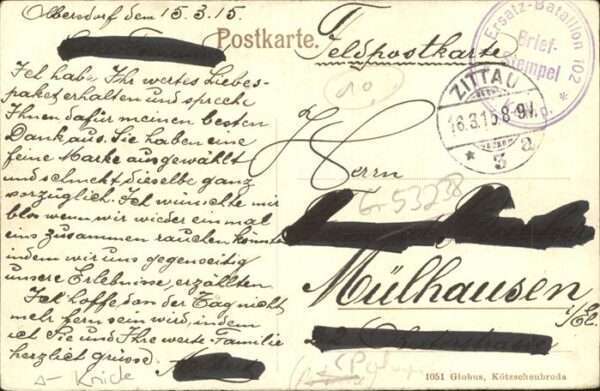 Olbersdorf dem 15.3.15.
Postkarte.
Feldpostkarte
Ich habe Ihr wertes Liebes-
paket erhalten und spreche
Ihnen dafür meinen besten
Dank aus. Sie haben eine
feine Marke ausgewählt
und schmekt dieselbe ganz
vorzüglich. Ich wünschte mir
blos wenn wir wieder einmal
eins zusammen rauchen könnte
indem wir uns gegenseitig
unsere Erlebnisse erzählten
Ich hoffe das der Tag nicht
mehr fern sein wird, indem
ich Sie und Ihre werte Familie
herzlich grüsse.
Ersatz-Bataillon 102
Brief-
stempel
ZITTAU
16.3.15.8-9V.
* 3 a
Herrn
53238
Mülhausen
i/Els.
1051 Globus, Kötzschenbroda